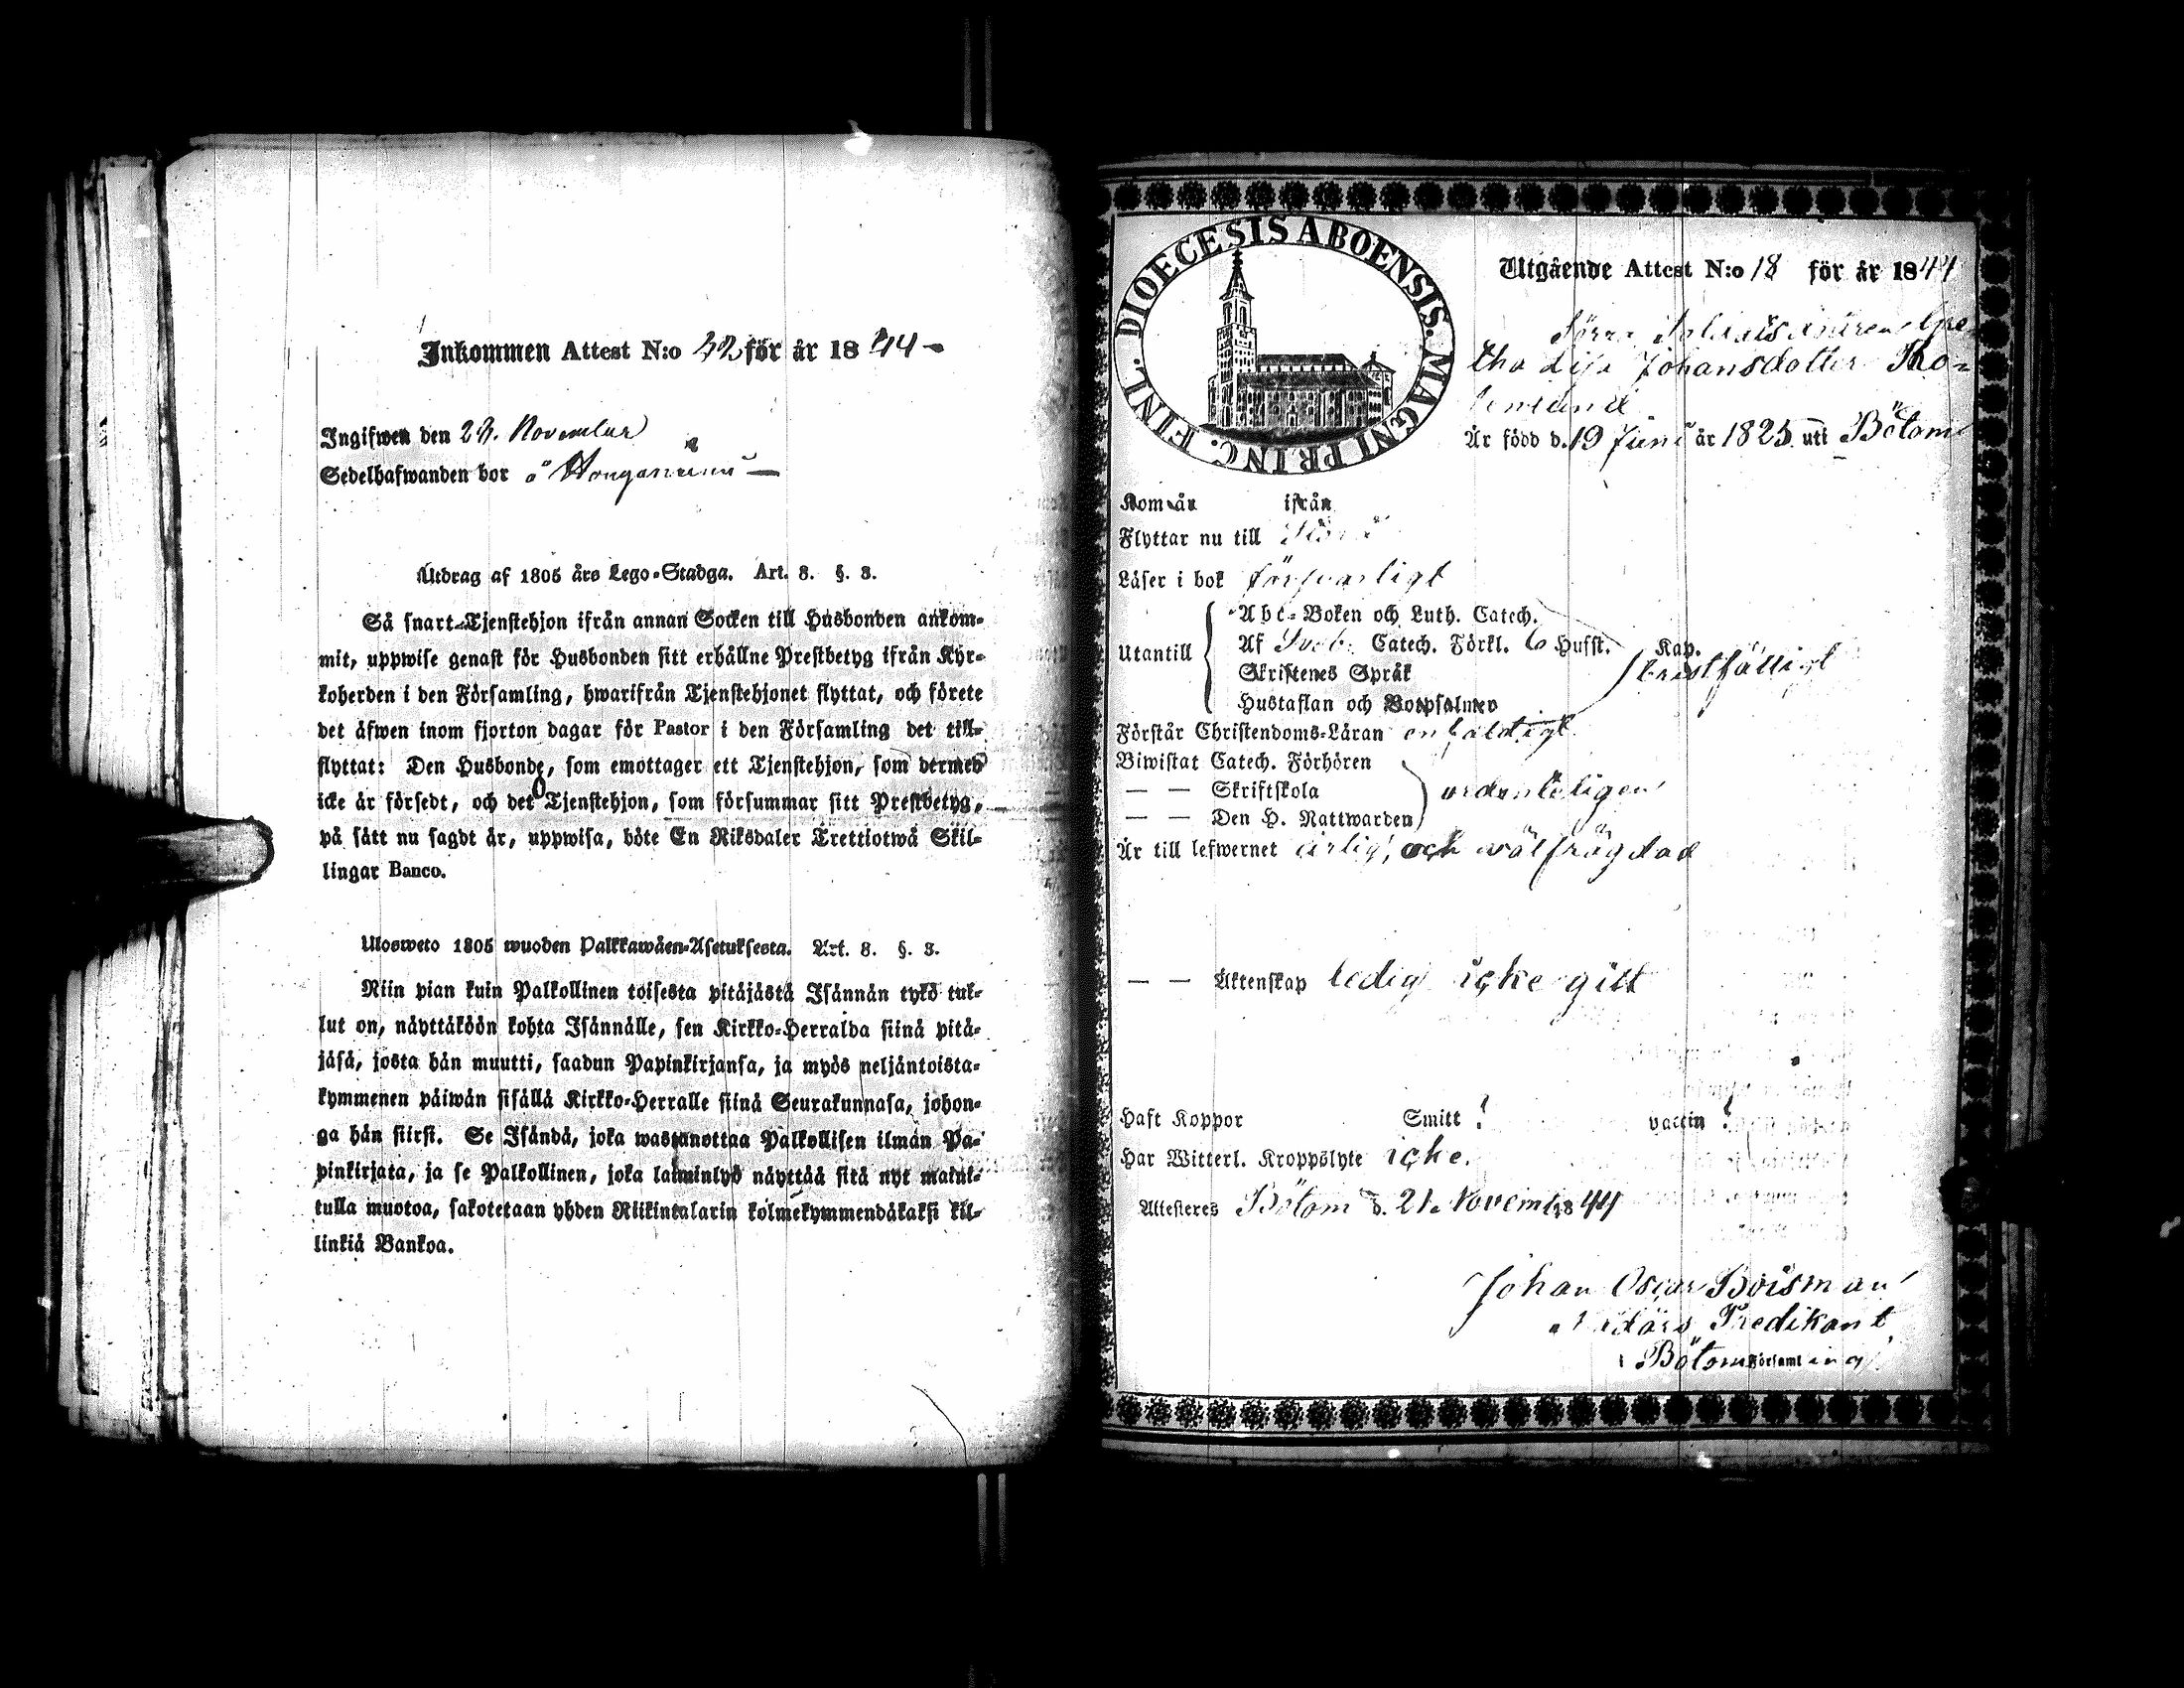 Inkommen Attest N:o 42 för år 1844 –
Ingifwen den 28. November
Sedelhafwanden bor å
Utdrag af 1805 års Lego-Stadga. Art. 8. §. 3.
Så snart Tjenstehjon ifrån annan Socken till Husbonden ankom-
mit, uppwise genast för Husbonden sitt erhållne Prestbetyg ifrån Kyr-
koherden i den Församling, hwarifrån Tjenstehjonet flyttat, och förete
det äfwen inom fjorton dagar för Pastor i den Församling det till-
flyttat: Den Husbonde, som emottager ett Tjenstehjon, som dermed
icke är försedt, och det Tjenstehjon, som försummar sitt Prestbetyg,
på sätt nu sagdt är, uppwisa, böte En Riksdaler Trettiotwå Skil-
lingar Banco.
Ulosweto 1805 wuoden Palkkawäen-Asetuksesta. Art. 8. §. 3.
Niin pian kuin Palkollinen toisesta pitäjästä Isännän tykö tul-
lut on, näyttäköön kohta Isännälle, sen Kirkko-Herralda siinä pitä-
jäsä, josta hän muutti, saadun Papinkirjansa, ja myös neljäntoista-
kymmenen päiwän sisällä Kirkko-Herralle siinä Seurakunnasa, johon-
ga hän siirsi. Se Isändä, joka wastanottaa Palkollisen ilman Pa-
pinkirjata, ja se Palkollinen, joka laiminlyö näyttää sitä nyt mainit-
tulla muotoa, sakotetaan yhden Riikintalarin kolmekymmendäkaksi kil-
linkiä Bankoa.
DIOECESIS ABOENSIS. MAGNI PRINC. FINL.
Utgående Attest N:o 18 för år 1844
Gre-
tha Lisa Johansdotter

Är född d. 19 Juni år 1825 uti Bötom
Kom år ifrån
Flyttar nu till
Läser i bok försvarligt
Utantill
Abc-Boken och Luth. Catech.
Af Sveb. Catech. Förkl. 6 Hufst. Kap.
Skriftenes Språk
Hustaflan och Botpsalmer
bristfälligt
Förstår Christendoms-Läran enfaldigt
Biwistat Catech. Förhören
— — Skriftskola
— — Den H. Nattwarden
ordenteligen
Är till lefwernet ärlig och wälfrägdad
— — Äktenskap ledig icke gift
Haft Koppor Smitt ! vaccin !
Har Witterl. Kroppslyte icke.
Attesteres Bötom d. 21. Novemb. 1844
Johan Oscar Boisman
Predikant
i Bötom Församling